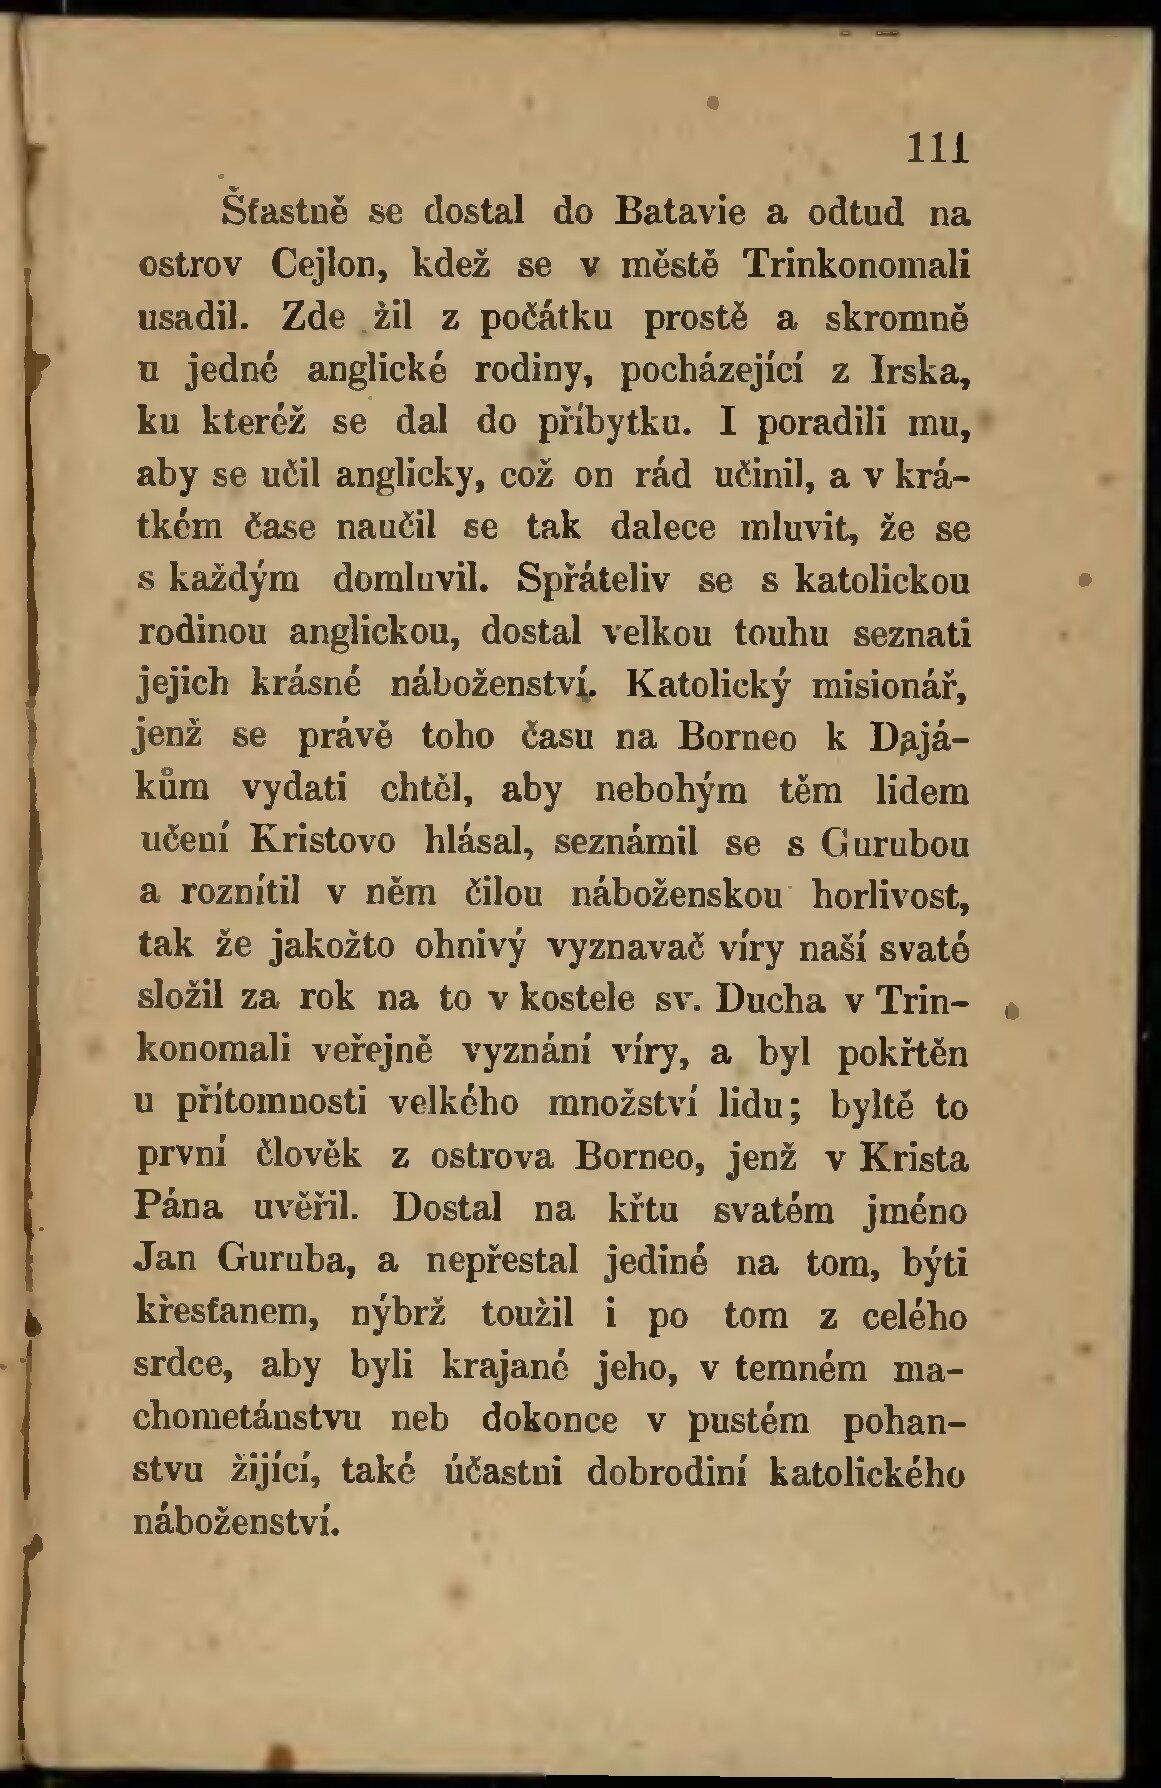 111
Šťastně se dostal do Batavie a odtud na
ostrov Cejlon, kdež se v městě Trinkonomali
usadil. Zde žil z počátku prostě a skromně
u jedné anglické rodiny, pocházející z Irska,
ku kteréž se dal do příbytku. I poradili mu,
aby se učil anglicky, což on rád učinil, a v krá-
tkém čase naučil se tak dalece mluvit, že se
s každým domluvil. Spřáteliv se s katolickou
rodinou anglickou, dostal velkou touhu seznati
jejich krásné náboženství. Katolický misionář,
jenž se právě toho času na Borneo k Dajá-
kům vydati chtěl, aby nebohým těm lidem
učení Kristovo hlásal, seznámil se s Gurubou
a roznítil v něm čilou náboženskou horlivost,
tak že jakožto ohnivý vyznavač víry naší svaté
složil za rok na to v kostele sv. Ducha v Trin-
konomali veřejně vyznání víry, a byl pokřtěn
u přítomnosti velkého množství lidu; byltě to
první člověk z ostrova Borneo, jenž v Krista
Pána uvěřil. Dostal na křtu svatém jméno
Jan Guruba, a nepřestal jediné na tom, býti
křesťanem, nýbrž toužil i po tom z celého
srdce, aby byli krajané jeho, v temném ma-
chometánstvu neb dokonce v pustém pohan-
stvu žijící, také účastni dobrodiní katolického
náboženství.